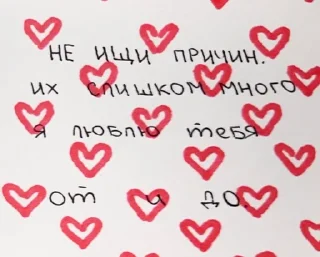 не ищи причин.
их слишком много
я люблю тебя
от и до.